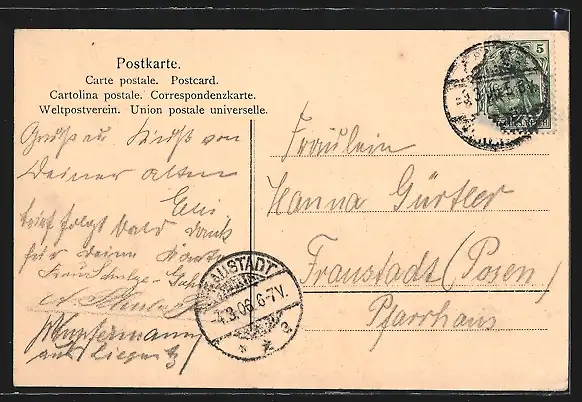 Postkarte.
Carte postale. Postcard.
Cartolina postale. Correspondenzkarte.
Weltpostverein. Union postale universelle.
5
Gruß u. Kuß von
Deiner alten
Elli
Brief folgt bald Dank
für Deine Karte
Fräulein
Hanna Gürtler
Fraustadt (Posen)
Pfarrhaus
FRAUSTADT
4.3.06. 6-7V.
a
Kupfermann
aus Liegnitz